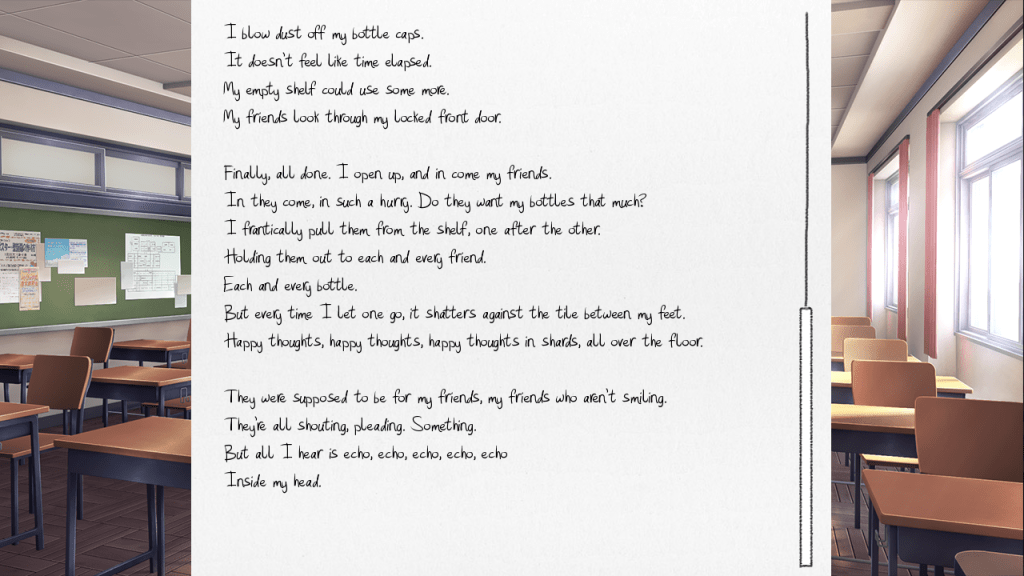 I blow dust off my bottle caps.
It doesn't feel like time elapsed.
My empty shelf could use some more.
My friends look through my locked front door.
Finally, all done. I open up, and in come my friends.
In they come, in such a hurry. Do they want my bottles that much?
I frantically pull them from the shelf, one after the other.
Holding them out to each and every friend.
Each and every bottle.
But every time I let one go, it shatters against the tile between my feet.
Happy thoughts, happy thoughts, happy thoughts in shards, all over the floor.
They were supposed to be for my friends, my friends who aren't smiling.
They're all shouting, pleading. Something.
But all I hear is echo, echo, echo, echo, echo
Inside my head.